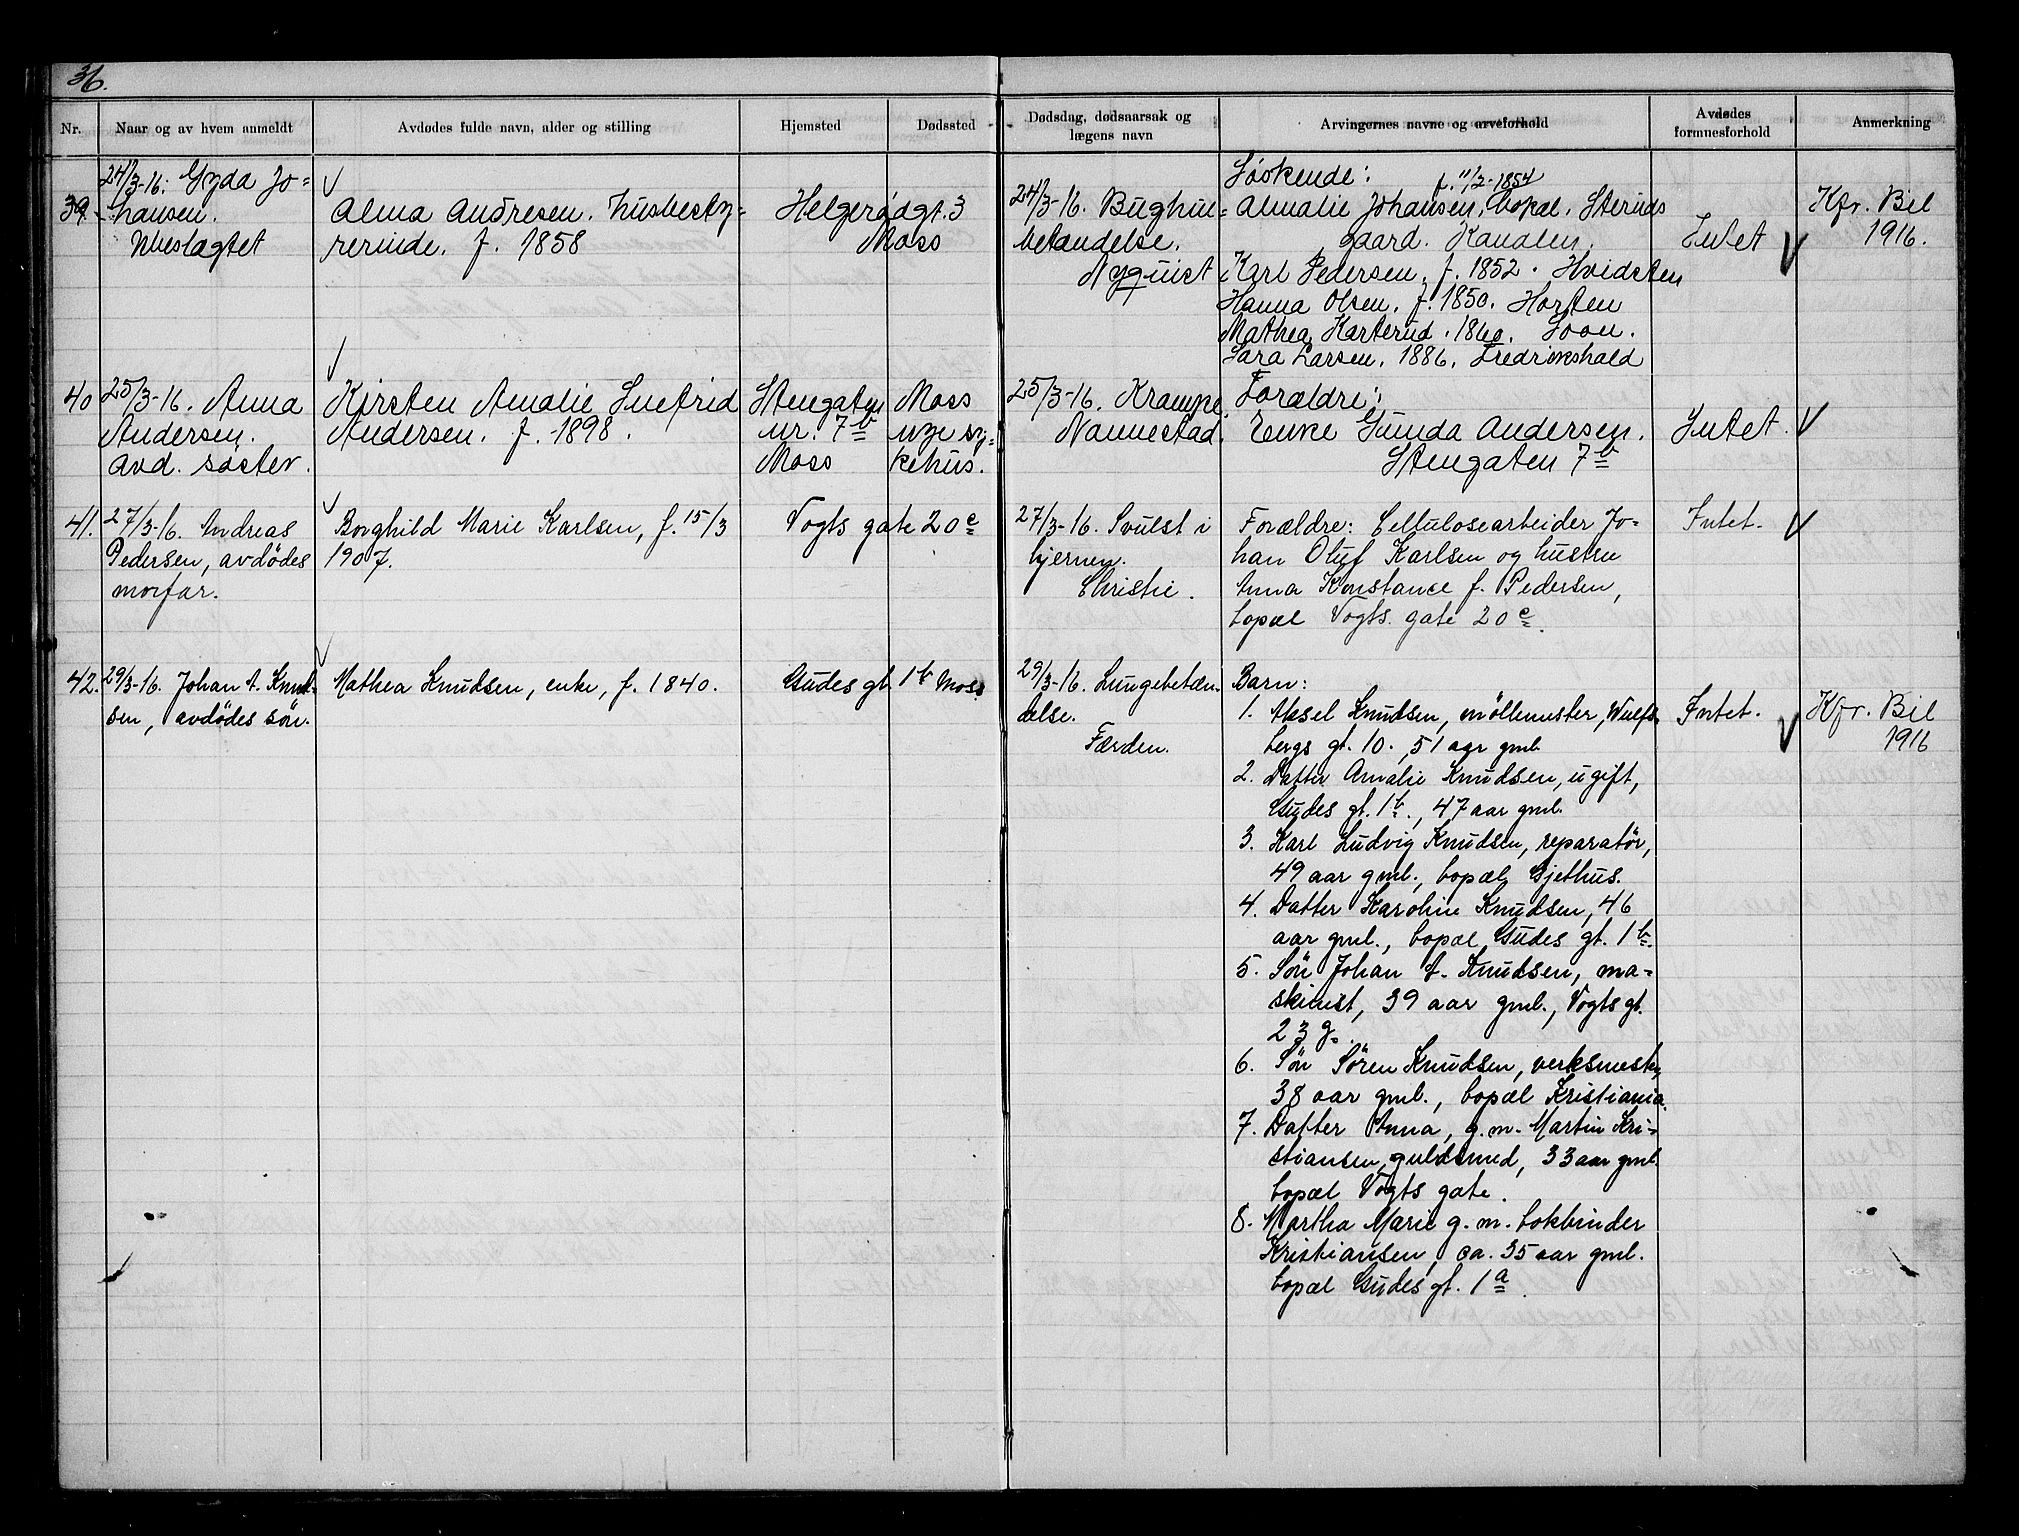 36.
Nr.
Naar og av hvem anmeldt
Avdødes fulde navn, alder og stilling
Hjemsted
Dødssted
Dødsdag, dødsaarsak og
lægens navn
Arvingernes navne og arveforhold
Avdødes
formnesforhold
Anmerkning
24/3-16. Gyda Jo=
39. hansen.
Ubeslægtet
Alma Andresen. husbesty=
rerinde. f. 1858
Helgerødgt. 3
Moss
24/3-16. Bughin=
betændelse.
Nyquist
Søskende:
f. 11/2-1854
Amalie Johansen, bopæl.
gaard. Kanalen.
Karl Pedersen, f. 1852. Hvidsten
Hanna Olsen, f. 1850. Horten
Mathea Karterud. 1860. Soon.
Sara Larsen. 1886. Fredrikshald
Intet
Kfr. Bil
1916.
40 25/3-16. Anna
Andersen.
avd. søster.
Kirsten Amalie
Andersen. f. 1898.
Stengaten
nr. 7b
Moss
Moss
nye sy=
kehus.
25/3-16. Krampe.
Nannestad.
Forældre:
Enke Gunda Andersen.
Stengaten 7b
Intet.
41. 27/3-16. Andreas
Pedersen, avdødes
morfar.
Borghild Marie Karlsen, f. 15/3
1907.
Vogts gate 20c
27/3-16. Svulst i
hjernen.
Christie.
Forældre: Cellulosearbeider Jo-
han Oluf Karlsen og hustru
Anna Konstance f. Pedersen,
bopæl Vogts gate 20c.
Intet.
42. 29/3-16. Johan A. Knud-
sen, avdødes søn.
Mathea Knudsen, enke, f. 1840.
Gudes gt. 1b Moss
29/3-16. Lungebetæn-
delse.
Færden.
Barn:
1. Aksel Knudsen, møllemester, Wulfs-
bergs gt. 10., 51 aar gml.
2. Datter Amalie Knudsen, ugift,
Gudes gt. 1b., 47 aar gml.
3. Karl Ludvig Knudsen, reparatør,
49 aar gml., bopæl Gjethus.
4. Datter Karoline Knudsen, 46
aar gml., bopæl Gudes gt. 1b.
5. Søn Johan A. Knudsen, ma-
skinist, 39 aar gml., Vogts gt.
23 g.
6. Søn Søren Knudsen, verksmester,
38 aar gml., bopæl Kristiania.
7. Datter Anna, g.m. Martin Kri-
stiansen, guldsmed, 33 aar gml.
bopæl Vogts gate.
8. Martha Marie g. m. bokbinder
Kristiansen, ca. 35 aar gml.
bopæl Gudes gt. 1a.
Intet.
Kfr. Bil
1916